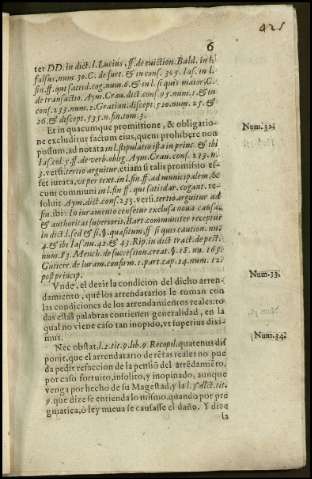 421
6
ter DD. in dict. l. Lucius, ff. de euiction. Bald. in l.
falsus, num. 30. C. de furt. & in cons. 365. Ias. in l.
fin. ff. qui satisd. cog. num. 6. & in l. si quis maior, C.
de transactio. Aym. Crau. dict. cons. 95. num. 1. & in
cons. 233. num. 2. Gratian. discept. 510. num. 25. &
26. & discept. 535. n. fin. tom. 3.
Et in quacumque promissione, & obligatio-
ne excluditur factum eius, quem prohibere non
possum, ad notata in l. stipulatio ista in princ. & ibi
Ias. col. 3. ff. de verb. oblig. Aym. Crau. cons. 233. n.
3. vers. tertio arguitur, etiam si talis promissio es-
set iurata, vt per text. in l. fin. ff. ad municip. alem, &
cum communi in l. fin ff. qui satisdar. cogant. re-
soluit Aym. dict. cons. 233. vers. tertio arguitur ad
fin. ibi: In iuramento censetur exclusa noua causa,
& authoritas superioris. Bart. communiter receptus
in dict. l. sed & si, §. quæsitum ff si quis caution. nu.
4. & ibi Ias. nu. 42. & 43. Rip. in dict tract. de pest.
num. 83. Mench. de succession. creat. §. 18. nu. 163.
Gutierr. de iuram. confirm. 1. part. cap. 14. num. 12.
post princip.
Vnde, el dezir la condicion del dicho arren-
damiento, que los arrendatarios le toman con
las condiciones de los arrendamientos reales: to
das estas palabras contienen generalidad, en la
qual no viene caso tan inopido, vt superius dixi-
mus.
Nec obstat, l. 2. tit. 9. lib. 9. Recopil. quatenus dis
ponit, que el arrendatario de rẽtas reales no pue
da pedir refaccion de la pensiõ del arrẽdamiẽto,
por caso fortuito, insolito, y inopinado, aunque
venga por hecho de su Magestad, y la l. 3. dict. tit.
9. que dize se entienda lo mismo, quando por pre
gmatica, ò ley nueua se causasse el daño. Y dize
la
Num. 32.
Num. 33.
Num. 34.